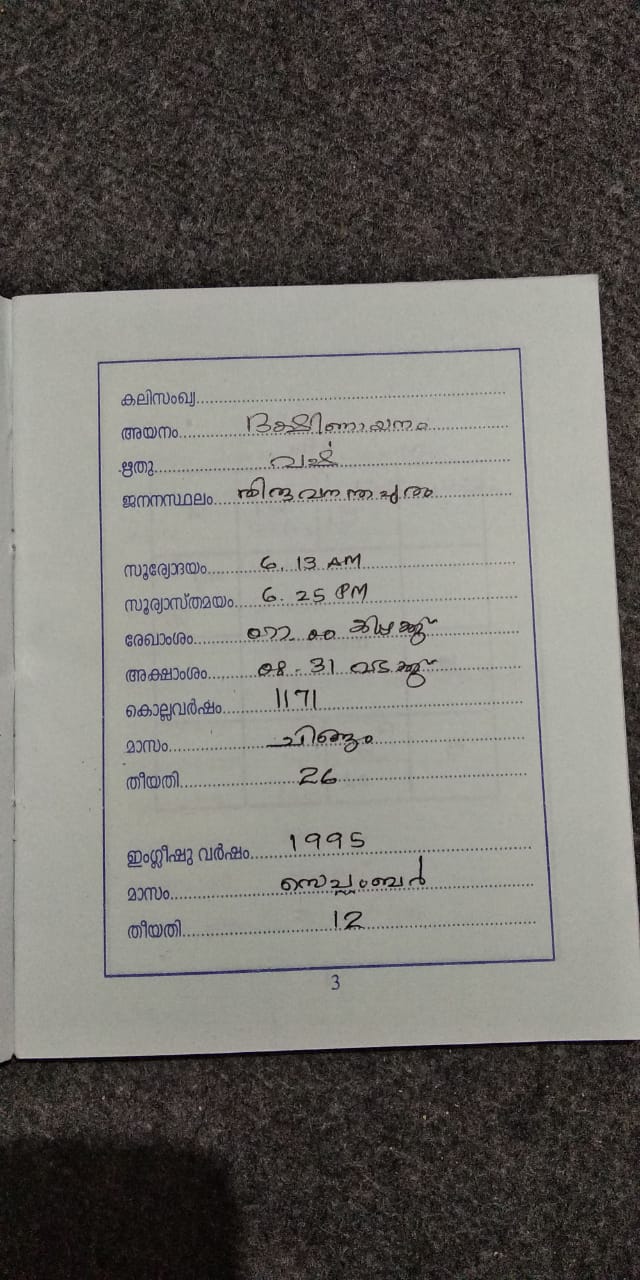 കലിസംഖ്യ..........
അയനം.......... ദക്ഷിണായനം
ഋതു.......... വർഷ
ജനനസ്ഥലം.......... തിരുവനന്തപുരം
സൂര്യോദയം.......... 6.13 AM
സൂര്യാസ്തമയം.......... 6.25 PM
രേഖാംശം.......... കിഴക്ക്
അക്ഷാംശം.......... 08-31 വടക്ക്
കൊല്ലവർഷം.......... 1171
മാസം.......... ചിങ്ങം
തീയതി.......... 26
ഇംഗ്ലീഷു വർഷം.......... 1995
മാസം.......... സെപ്റ്റംബർ
തീയതി.......... 12
3